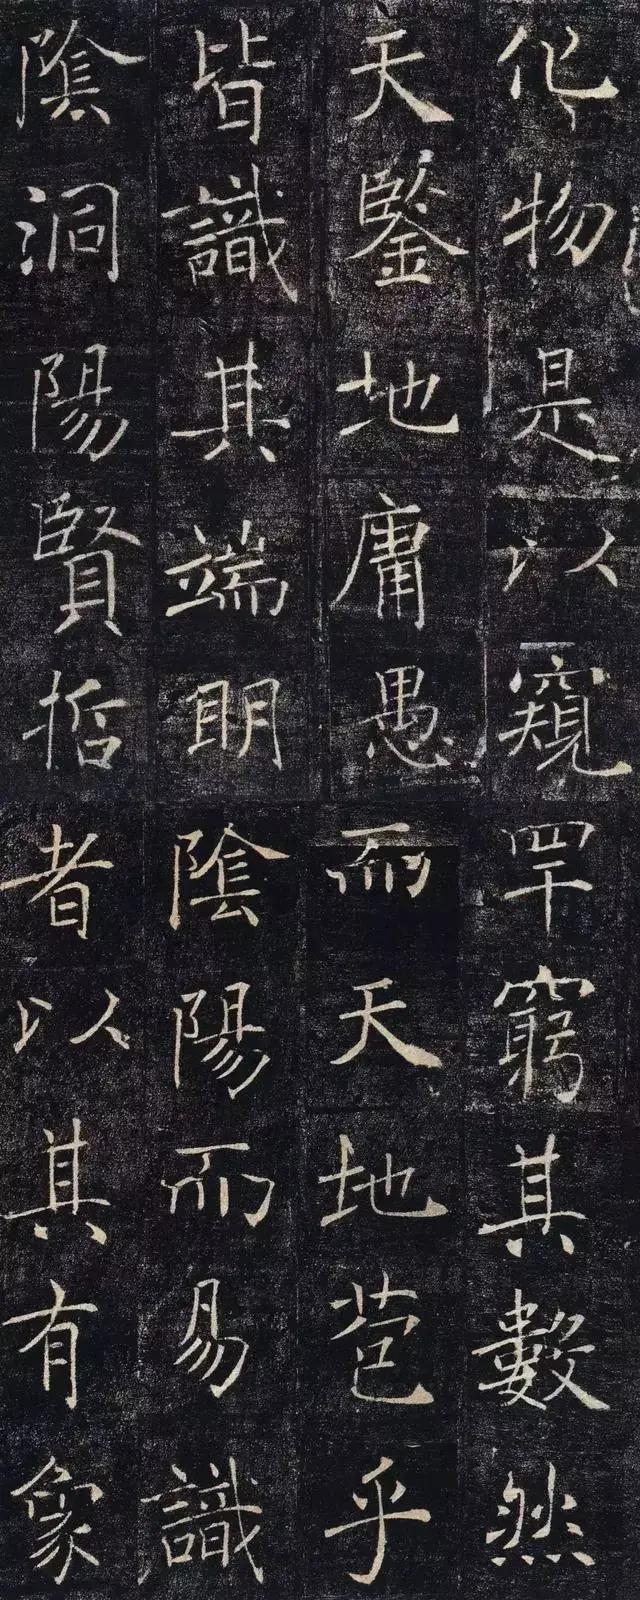 化物是以窺
天鑒地庸愚
皆識其端明
陰洞陽賢哲
罕窮其數然
而天地苞乎
陰陽而易識
者以其有象